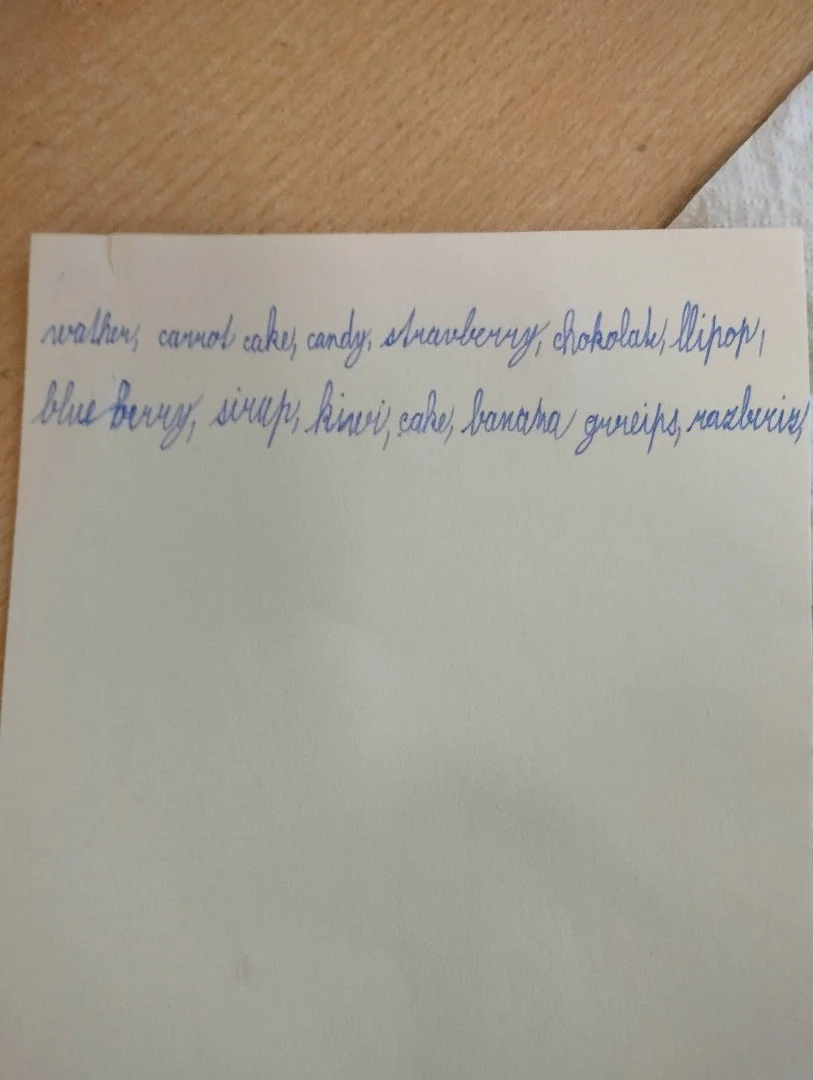 wather, carrot cake, candy, stravberry, chokolate, llipop,
blue berry, sirup, kiwi, cake, banana grreips, razberiz,